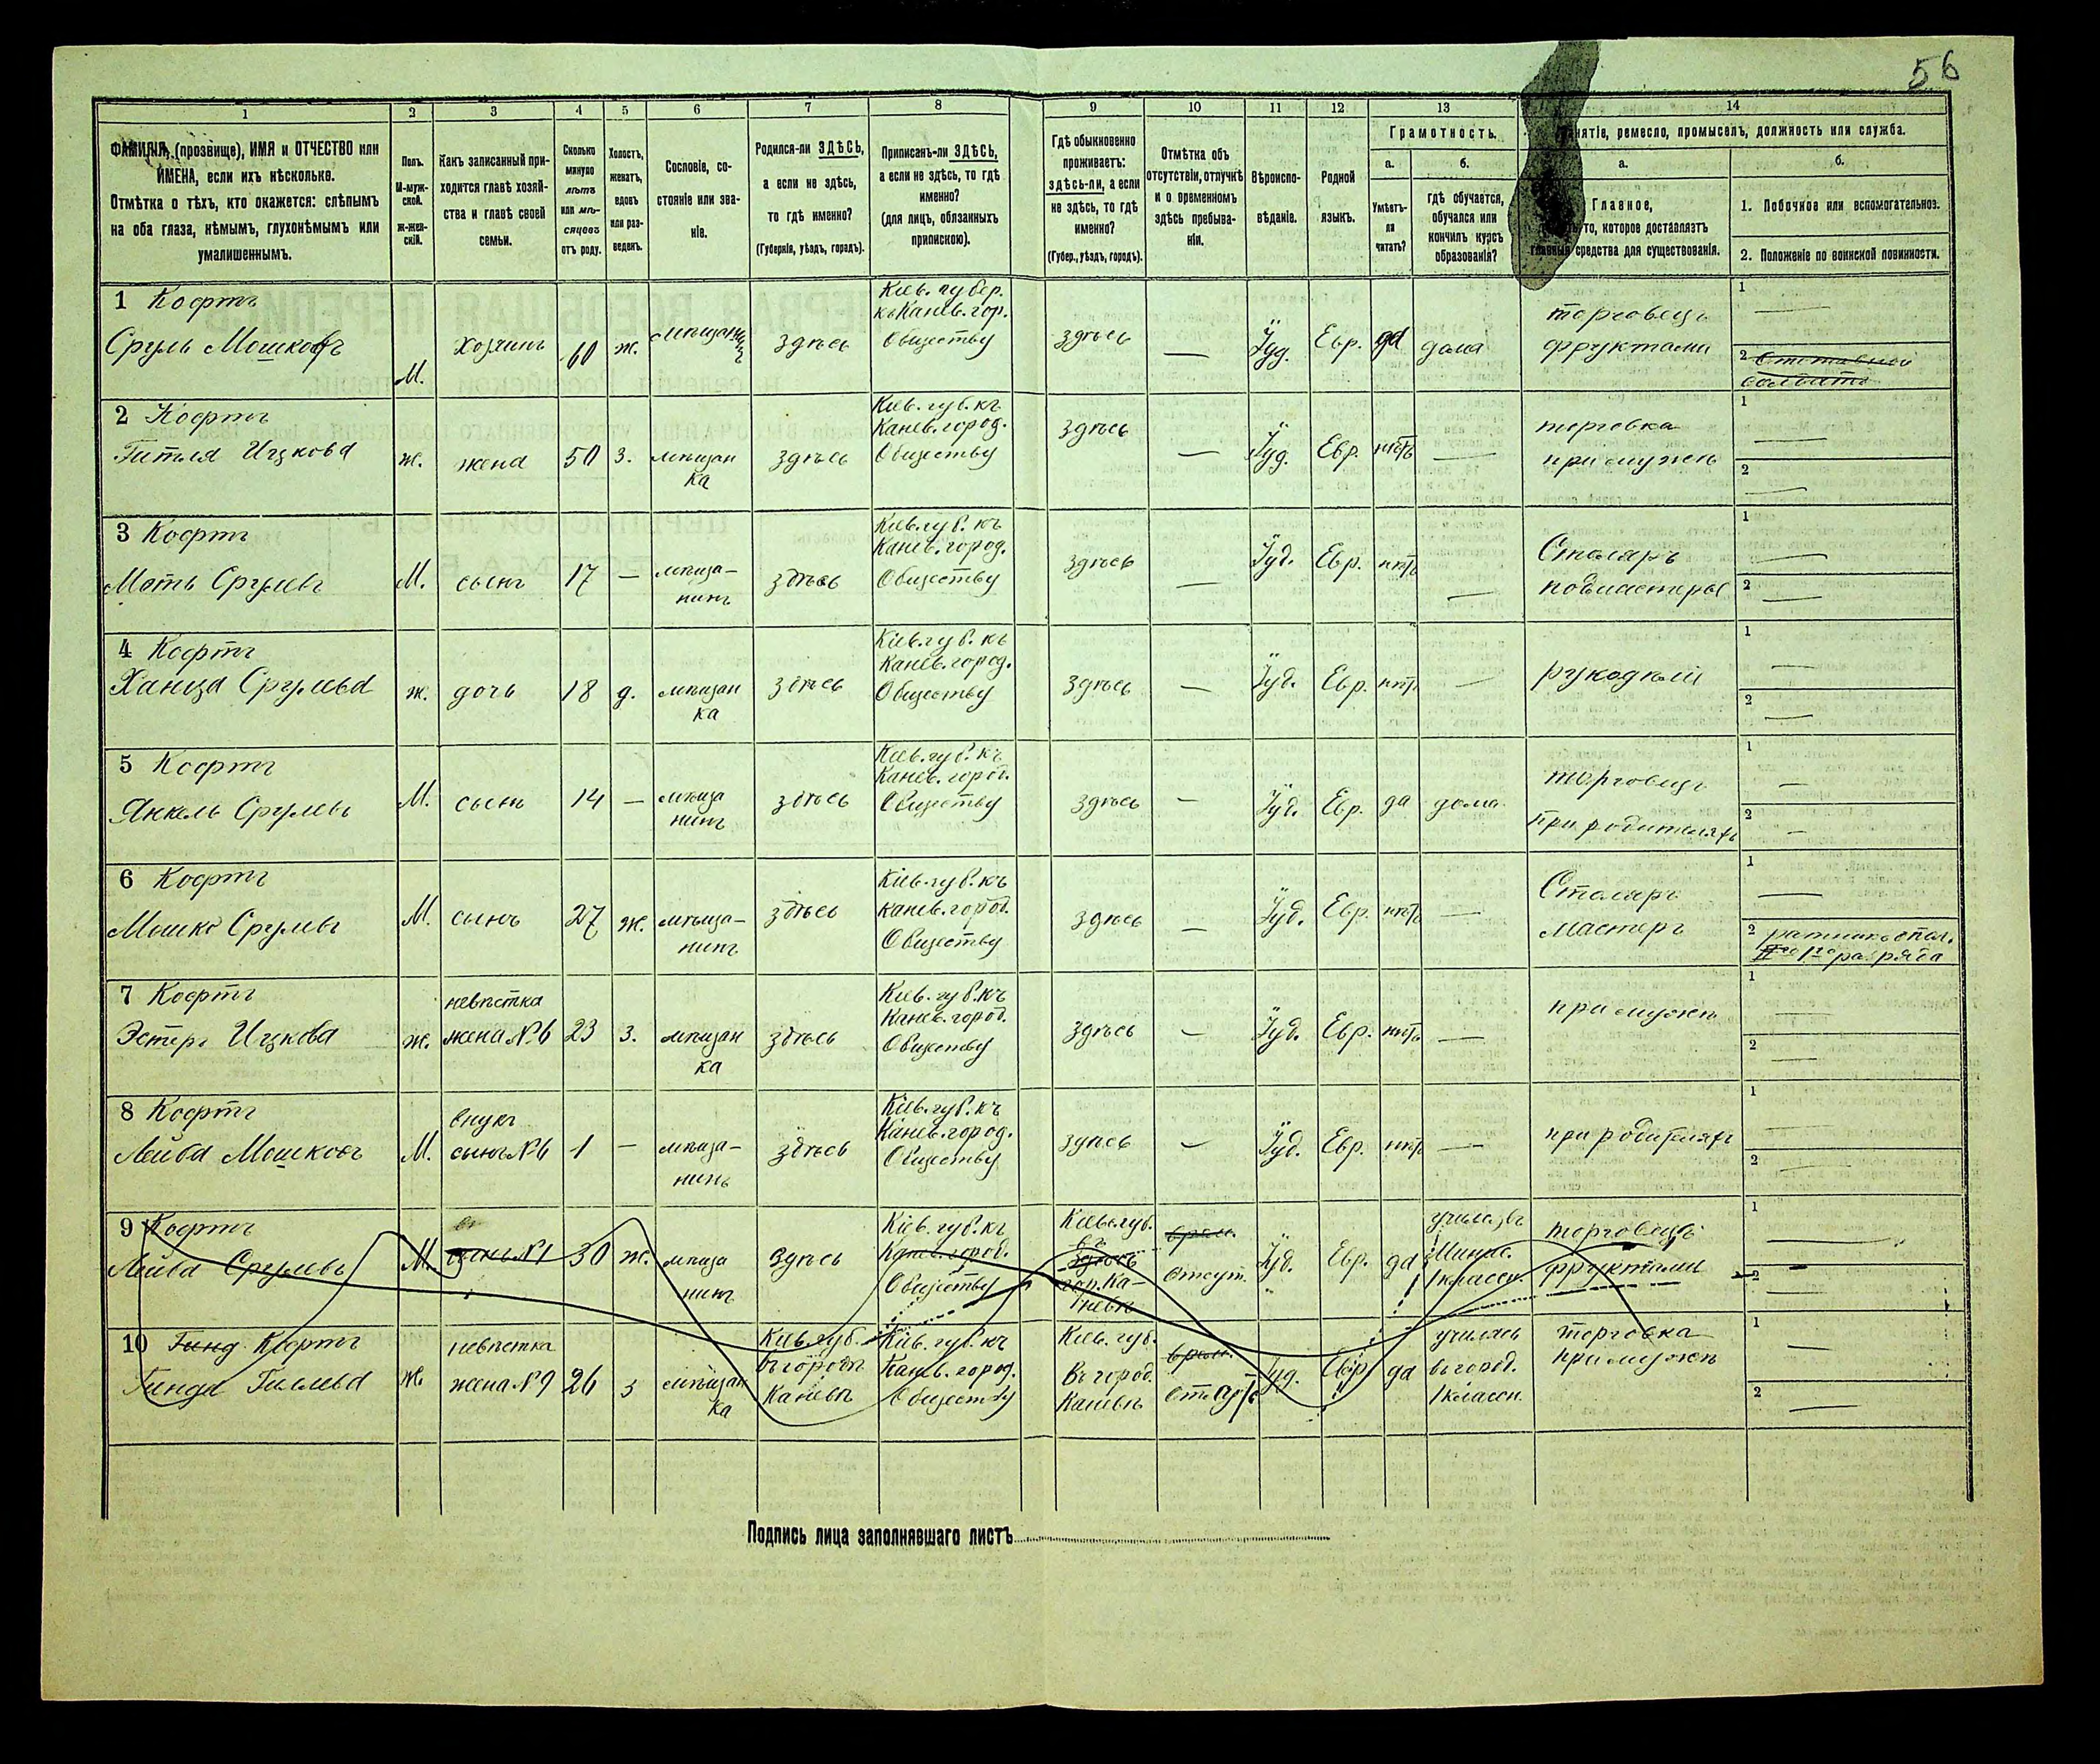 56
1 2 3 4 5 6 7 8 9 10 11 12 13 14
ФАМИЛІЯ, (прозвище), ИМЯ и ОТЧЕСТВО или
ИМЕНА, если ихъ нѣсколько.
Отмѣтка о тѣхъ, кто окажется: слѣпымъ
на оба глаза, нѣмымъ, глухонѣмымъ или
умалишеннымъ.
Полъ.
М-муж-
ской.
Ж-жен-
скій.
Какъ записанный при-
ходится главѣ хозяй-
ства и главѣ своей
семьи.
Сколько
минуло
лѣтъ
или мѣ-
сяцевъ
отъ роду.
Холостъ,
женатъ,
вдовъ
или раз-
веденъ.
Сословіе, со-
стояніе или зва-
ніе.
Родился-ли ЗДѢСЬ,
а если не здѣсь,
то гдѣ именно?
(Губернія, уѣздъ, городъ).
Приписанъ-ли ЗДѢСЬ,
а если не здѣсь, то гдѣ
именно?
(для лицъ, обязанныхъ
припискою).
Гдѣ обыкновенно
проживаетъ:
здѣсь-ли, а если
не здѣсь, то гдѣ
именно?
(Губер., уѣздъ, городъ).
Отмѣтка объ
отсутствіи, отлучкѣ
и о временномъ
здѣсь пребыва-
ніи.
Вѣроиспо-
вѣданіе.
Родной
языкъ.
Грамотность.
а.
Умѣетъ-
ли
читать?
б.
гдѣ обучается,
обучался или
кончилъ курсъ
образованія?
Занятіе, ремесло, промыселъ, должность или служба.
Главное,
то, которое доставляетъ
главныя средства для существованія.
б.
1. Побочное или вспомогательное.
2. Положеніе по воинской повинности.
1 Кофтъ
Сруль Мошковъ
М.
хозяинъ
60
ж.
мѣщанинъ
здѣсь
Кіев. губер.
къ Канев. гор.
Обществу
здѣсь
—
Іуд.
Евр.
да
дома
торговецъ
фруктами
1 —
2
2 Кофтъ
Гитля Ицкова
ж.
жена
50
з.
мѣщан
ка
здѣсь
Кіев. губ. къ
Канев. город.
Обществу
здѣсь
—
Іуд.
Евр.
нѣтъ
—
торговка
при мужѣ
1 —
2 —
3 Кофтъ
Моть Срулевъ
М.
сынъ
17
—
мѣща-
нинъ
здѣсь
Кіев. губ. къ
Канев. город.
Обществу
здѣсь
—
Іуд.
Евр.
нѣтъ
—
Столяръ
подмастеръе
1 —
2 —
4 Кофтъ
Ханца Срулева
ж.
дочь
18
д.
мѣщан
ка
здѣсь
Кіев. губ. къ
Канев. город.
Обществу
здѣсь
—
Іуд.
Евр.
нѣтъ
—
рукодѣлій
1 —
2 —
5 Кофтъ
Янкель Срулевъ
М.
сынъ
14
—
мѣща
нинъ
здѣсь
Кіев. губ. къ
Канев. город.
Обществу
здѣсь
—
Іуд.
Евр.
да
дома
торговецъ
при родителяхъ
1 —
2 —
6 Кофтъ
Мошко Срулевъ
М.
сынъ
27
ж.
мѣща-
нинъ
здѣсь
Кіев. губ. къ
Канев. город.
Обществу
здѣсь
—
Іуд.
Евр.
нѣтъ
—
Столяръ
мастеръ
1 —
2 ратникъ опол.
1го разряда
7 Кофтъ
Эстеръ Ицкова
ж.
невѣстка
жена №6
23
з.
мѣщан
ка
здѣсь
Кіев. губ. къ
Канев. город.
Обществу
здѣсь
—
Іуд.
Евр.
нѣтъ
—
при мужѣ
1 —
2 —
8 Кофтъ
Лейба Мошковъ
М.
внукъ
сынъ №6
1
—
мѣща-
нинъ
здѣсь
Кіев. губ. къ
Канев. город.
Обществу
здѣсь
—
Іуд.
Евр.
нѣтъ
—
при родителяхъ
1 —
2 —
9 Кофтъ
Лейба Срулевъ
М.
сынъ №1
30
ж.
мѣща
нинъ
здѣсь
Кіев. губ. къ
Канев. город.
Обществу
Кіев. губ.
въ
здѣсь
гор. Ка-
невѣ
врем.
отсут.
Іуд.
Евр.
да
1 класн.
торговецъ
фруктами
1 —
2 —
10 Гинд. Кофтъ
Гинда
ж.
невѣстка
жена №9
26
з
мѣщан
ка
Кіев. губ.
въ городѣ
Каневѣ
Кіев. губ. къ
Канев. город.
Обществу
Кіев. губ.
въ город.
Каневѣ
врем.
Іуд.
Евр.
да
училась
въ город.
1 классн.
торговка
при мужѣ
1 —
2 —
Подпись лица заполнявшаго листъ